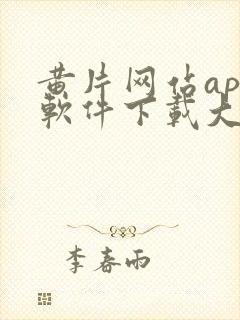 黄片网佔ap
軟件下載大
李春雨